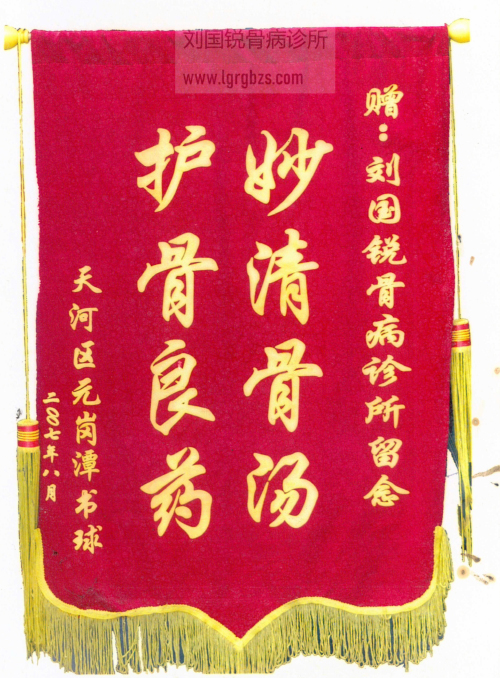 刘国锐骨病诊所
www.lgrgbzs.com
赠：刘国锐骨病诊所留念
妙清骨汤
护骨良药
天河区元岗潭书球
二〇〇七年八月